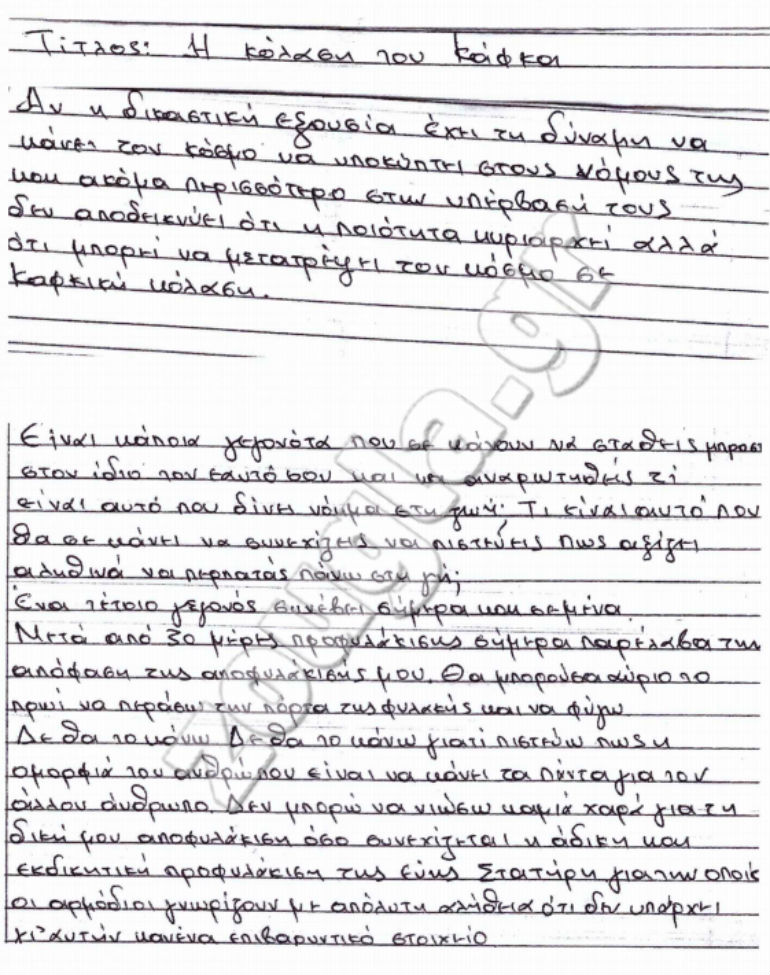 Τίτλος: Η κόλαση του Κάφκα
Αν η δικαστική εξουσία έχει τη δύναμη να
κάνει τον κόσμο να υποκύπτει στους νόμους της
και ακόμα περισσότερο στην υπέρβασή τους
δεν αποδεικνύει ότι η ποιότητα κυριαρχεί αλλά
ότι μπορεί να μετατρέψει τον κόσμο σε
καφκική κόλαση.
Είναι κάποια γεγονότα που σε κάνουν να σταθείς μπροσ
στον ίδιο τον εαυτό σου και να αναρωτηθείς τί
είναι αυτό που δίνει νόημα στη ζωή; Τι είναι αυτό που
θα σε κάνει να συνεχίζεις να πιστεύεις πως αξίζει
αληθινά να περπατάς πάνω στη γη;
Ένα τέτοιο γεγονός συνέβει σήμερα και σεμένα
Μετά από 30 μέρες προφυλάκισης σήμερα παρέλαβα την
απόφαση της αποφυλάκισής μου. Θα μπορούσα αύριο το
πρωί να περάσω την πόρτα της φυλακής και να φύγω
Δε θα το κάνω Δε θα το κάνω γιατί πιστεύω πως η
ομορφιά του ανθρώπου είναι να κάνει τα πάντα για τον
άλλον άνθρωπο. Δεν μπορώ να νιώσω καμιά χαρά για τη
δική μου αποφυλάκιση όσο συνεχίζεται η άδικη και
εκδικητική προφυλάκιση της Εύης Στατήρη για την οποία
οι αρμόδιοι γνωρίζουν με απόλυτη αλήθεια ότι δεν υπάρχει
γι'αυτήν κανένα επιβαρυντικό στοιχείο
zougla.gr